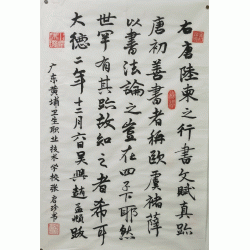 右唐陸柬之行書文賦真跡
唐初善書者稱歐虞褚薛
以書法論之豈在四子下耶然
世罕有其跡故知之者希耳
大德二年十二月六日吳興趙孟頫跋
广东黄埔卫生职业技术学校 张君珍书